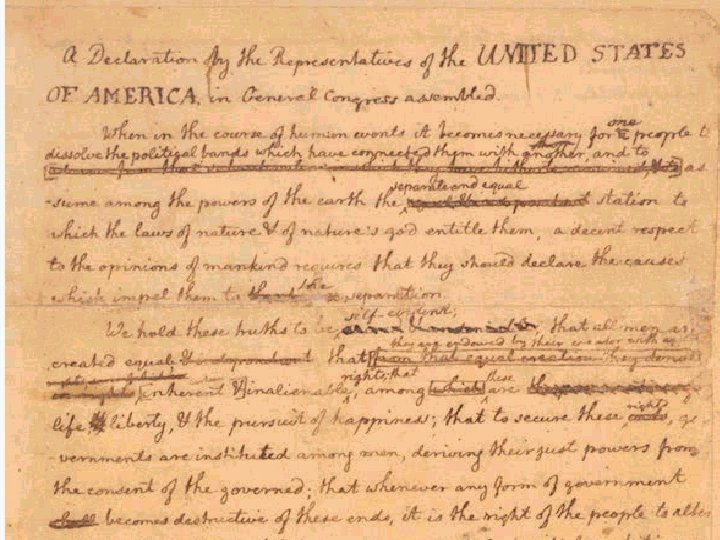 A Declaration by the Representatives of the UNITED STATES
OF AMERICA, in General Congress assembled.
When in the course of human events it becomes necessary for one people to
dissolve the political bands which have connected them with another, and to
as
separate and equal
-sume among the powers of the earth the station to
which the laws of nature & of nature's god entitle them, a decent respect
to the opinions of mankind requires that they should declare the causes
which impel them to the separation.
self-evident;
We hold these truths to be that all men are
they are endowed by their creator with
created equal & independent that from that equal creation they
rights; that
inherent & inalienable, among which these are
life, & liberty, & the pursuit of happiness; that to secure these rights, go
-vernments are instituted among men, deriving their just powers from
the consent of the governed; that whenever any form of government
shall becomes destructive of these ends, it is the right of the people to alter